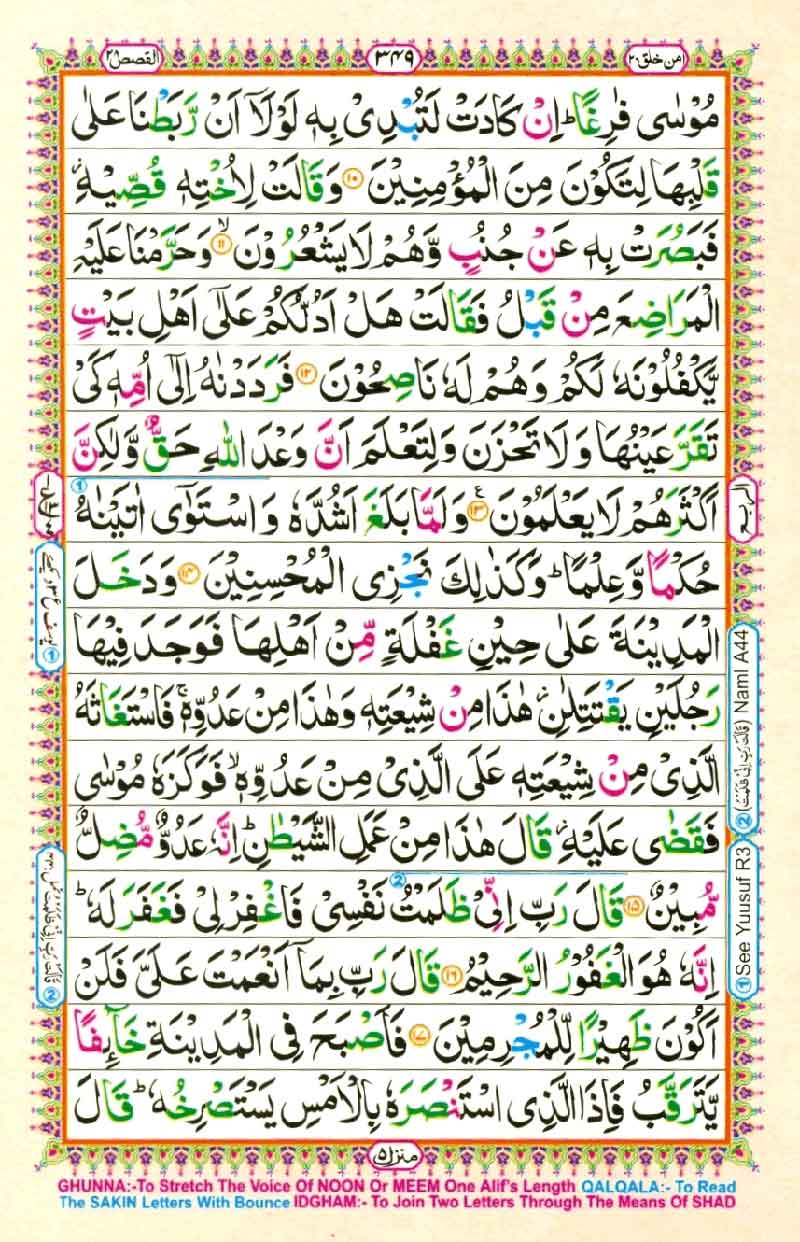 القصص ٢٨
٣٤٩
امن خلق ٢٠
مُوْسٰى فٰرِغًا ؕ اِنْ كَادَتْ لَتُبْدِیْ بِهٖ لَوْلَاۤ اَنْ رَّبَطْنَا عَلٰى
قَلْبِهَا لِتَكُوْنَ مِنَ الْمُؤْمِنِیْنَ ۝۱۰ وَقَالَتْ لِاُخْتِهٖ قُصِّیْهِ ؗ
فَبَصُرَتْ بِهٖ عَنْ جُنُبٍ وَّهُمْ لَا یَشْعُرُوْنَ ۝۱۱ۙ وَحَرَّمْنَا عَلَیْهِ
الْمَرَاضِعَ مِنْ قَبْلُ فَقَالَتْ هَلْ اَدُلُّكُمْ عَلٰۤى اَهْلِ بَیْتٍ
یَّكْفُلُوْنَهٗ لَكُمْ وَهُمْ لَهٗ نٰصِحُوْنَ ۝۱۲ فَرَدَدْنٰهُ اِلٰۤى اُمِّهٖ كَیْ
تَقَرَّ عَیْنُهَا وَلَا تَحْزَنَ وَلِتَعْلَمَ اَنَّ وَعْدَ اللّٰهِ حَقٌّ وَّلٰكِنَّ
اَكْثَرَهُمْ لَا یَعْلَمُوْنَ ۝۱۳ ع وَلَمَّا بَلَغَ اَشُدَّهٗ وَاسْتَوٰۤى اٰتَیْنٰهُ
حُكْمًا وَّعِلْمًا ؕ وَكَذٰلِكَ نَجْزِی الْمُحْسِنِیْنَ ۝۱۴ وَدَخَلَ
الْمَدِیْنَةَ عَلٰى حِیْنِ غَفْلَةٍ مِّنْ اَهْلِهَا فَوَجَدَ فِیْهَا
رَجُلَیْنِ یَقْتَتِلٰنِ ؗ هٰذَا مِنْ شِیْعَتِهٖ وَهٰذَا مِنْ عَدُوِّهٖ ۚ فَاسْتَغَاثَهُ
الَّذِیْ مِنْ شِیْعَتِهٖ عَلَى الَّذِیْ مِنْ عَدُوِّهٖ ۙ فَوَكَزَهٗ مُوْسٰى
فَقَضٰى عَلَیْهِ ؗ قَالَ هٰذَا مِنْ عَمَلِ الشَّیْطٰنِ ؕ اِنَّهٗ عَدُوٌّ مُّضِلٌّ
مُّبِیْنٌ ۝۱۵ قَالَ رَبِّ اِنِّیْ ظَلَمْتُ نَفْسِیْ فَاغْفِرْ لِیْ فَغَفَرَ لَهٗ ؕ
اِنَّهٗ هُوَ الْغَفُوْرُ الرَّحِیْمُ ۝۱۶ قَالَ رَبِّ بِمَاۤ اَنْعَمْتَ عَلَیَّ فَلَنْ
اَكُوْنَ ظَهِیْرًا لِّلْمُجْرِمِیْنَ ۝۱۷ فَاَصْبَحَ فِی الْمَدِیْنَةِ خَآئِفًا
یَّتَرَقَّبُ فَاِذَا الَّذِی اسْتَنْصَرَهٗ بِالْاَمْسِ یَسْتَصْرِخُهٗ ؕ قَالَ
الربع
② (قَالَتْ رَبِّ اِنِّیْ ظَلَمْتُ) Naml A44
① See Yuusuf R3
منزل ۵
GHUNNA:-To Stretch The Voice Of NOON Or MEEM One Alif's Length QALQALA:- To Read
The SAKIN Letters With Bounce IDGHAM:- To Join Two Letters Through The Means Of SHAD